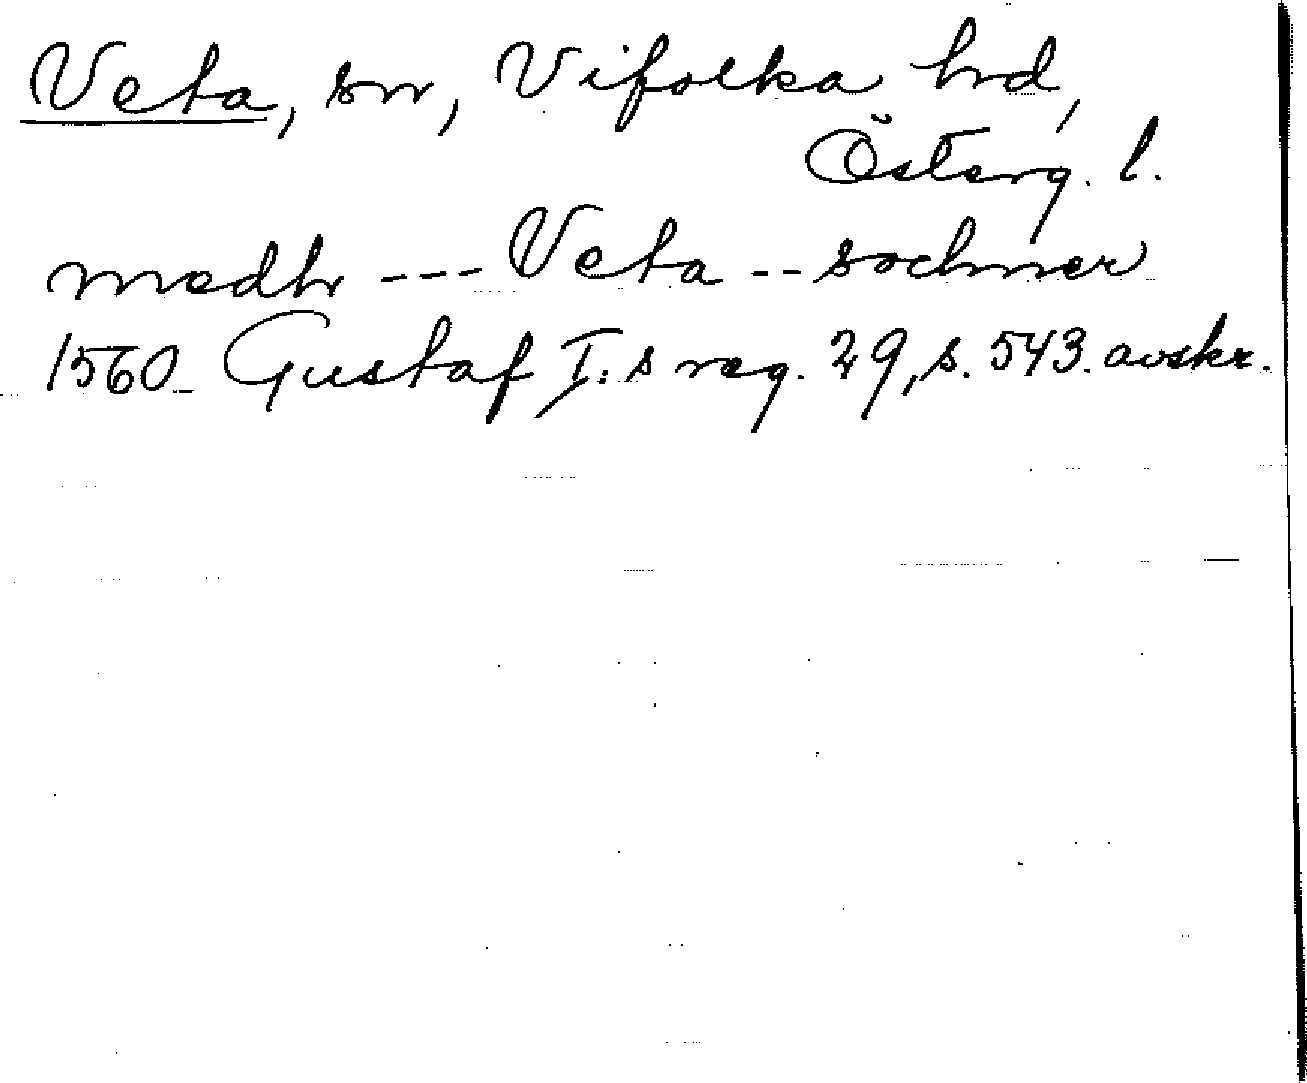 Veta, sn, Vifolka hrd,
Österg. l.
medh --- Veta -- sochner
1560 Gustaf I:s reg. 29, s. 543. avskr.